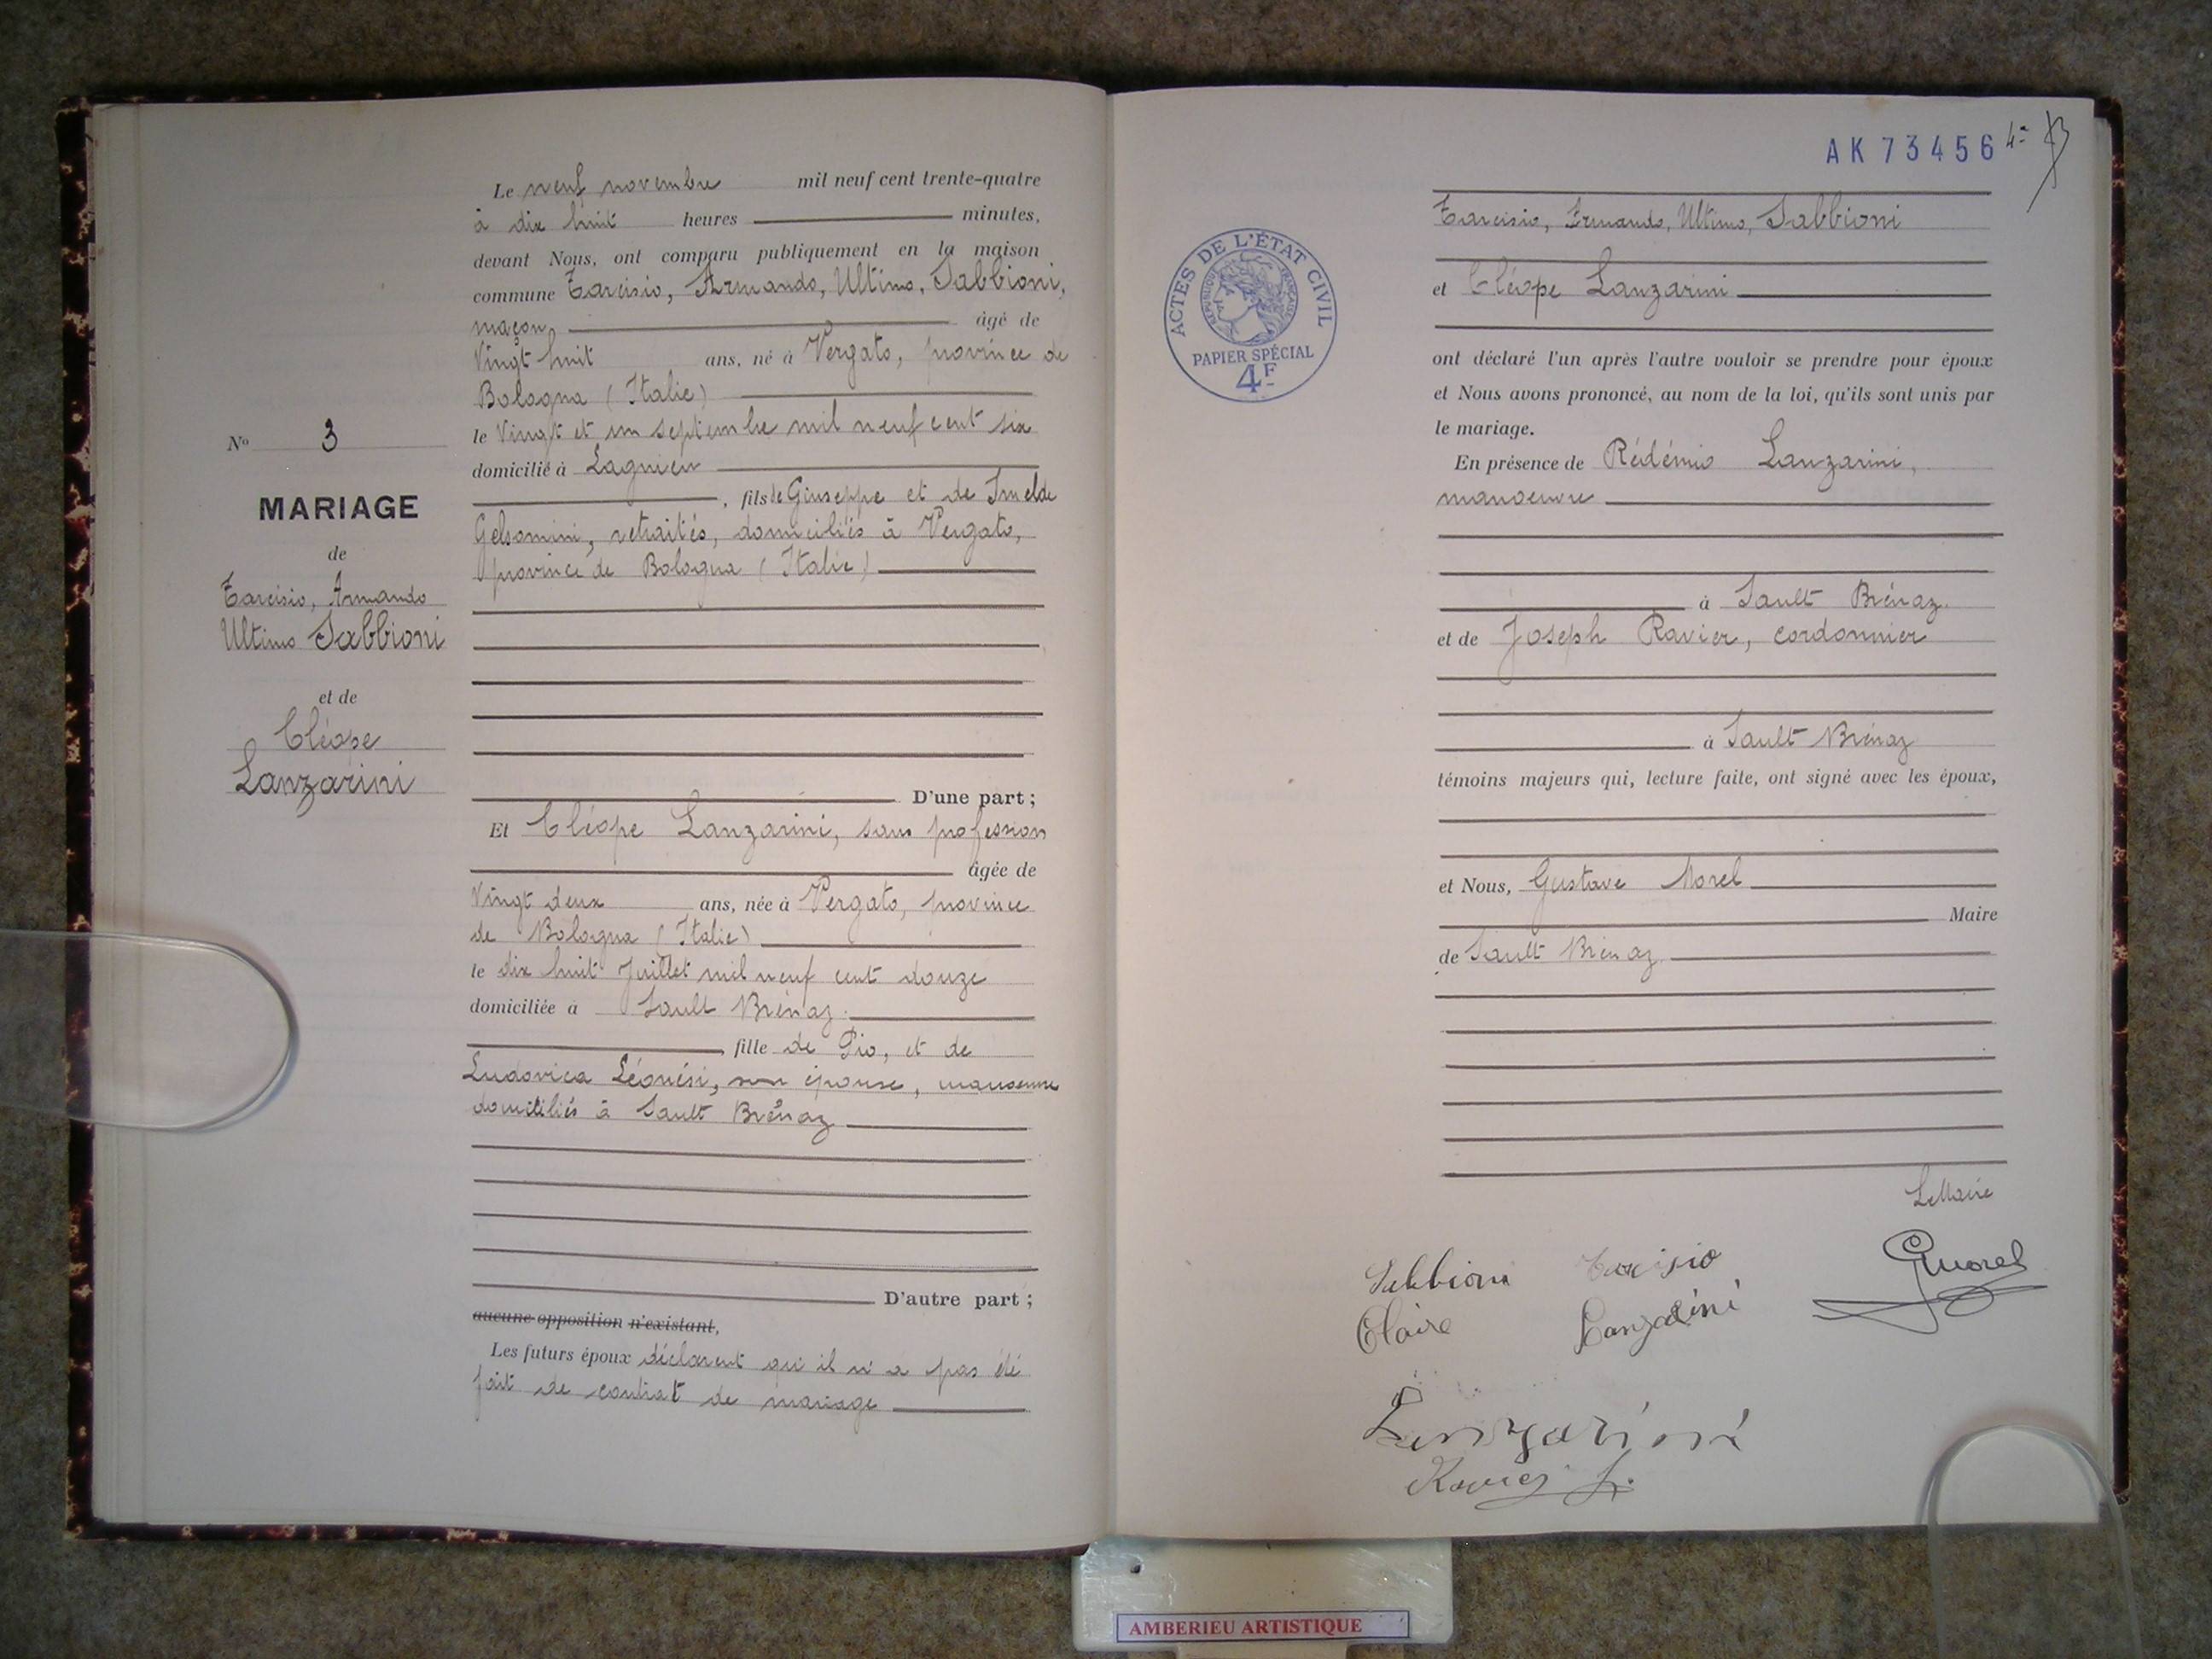 Le neuf novembre mil neuf cent trente-quatre
à dix huit heures minutes,
devant Nous, ont comparu publiquement en la maison
commune Tarcisio, Armando, Ultimo, Sabbioni,
maçon, âgé de
Vingt huit ans, né à Vergato, province de
Bologna (Italie)
le Vingt et un septembre mil neuf cent six
domicilié à Lagnieu
, fils de Giuseppe et de Imelde
Gelsomini, retraités, domiciliés à Vergato,
province de Bologna (Italie)
N° 3
MARIAGE
de
Tarcisio, Armando
Ultimo Sabbioni
et de
Cléope
Lanzarini
D'une part ;
Et Cléope Lanzarini, sans profession
âgée de
Vingt deux ans, née à Vergato, province
de Bologna (Italie)
le dix huit Juillet mil neuf cent douze
domiciliée à Sault Brénaz.
, fille de Pio, et de
Ludovica Léonési, son épouse, manoeuvre
domiciliés à Sault Brénaz
D'autre part ;
aucune opposition n'existant,
Les futurs époux déclarent qu'il n'a pas été
fait de contrat de mariage
AK 73456
ACTES DE L'ÉTAT CIVIL
RÉPUBLIQUE FRANÇAISE
PAPIER SPÉCIAL
4F
Tarcisio, Armando, Ultimo, Sabbioni
et Cléope Lanzarini
ont déclaré l'un après l'autre vouloir se prendre pour époux
et Nous avons prononcé, au nom de la loi, qu'ils sont unis par
le mariage.
En présence de Rédémio Lanzarini,
manoeuvre
à Sault Brénaz.
et de Joseph Ravier, cordonnier
à Sault Brénaz
témoins majeurs qui, lecture faite, ont signé avec les époux,
et Nous, Gustave Morel
Maire
de Sault Brénaz
Le Maire
Sabbioni Tarcisio
GMorel
Claire Lanzarini
Lanzarini
Ravier J.
AMBERIEU ARTISTIQUE